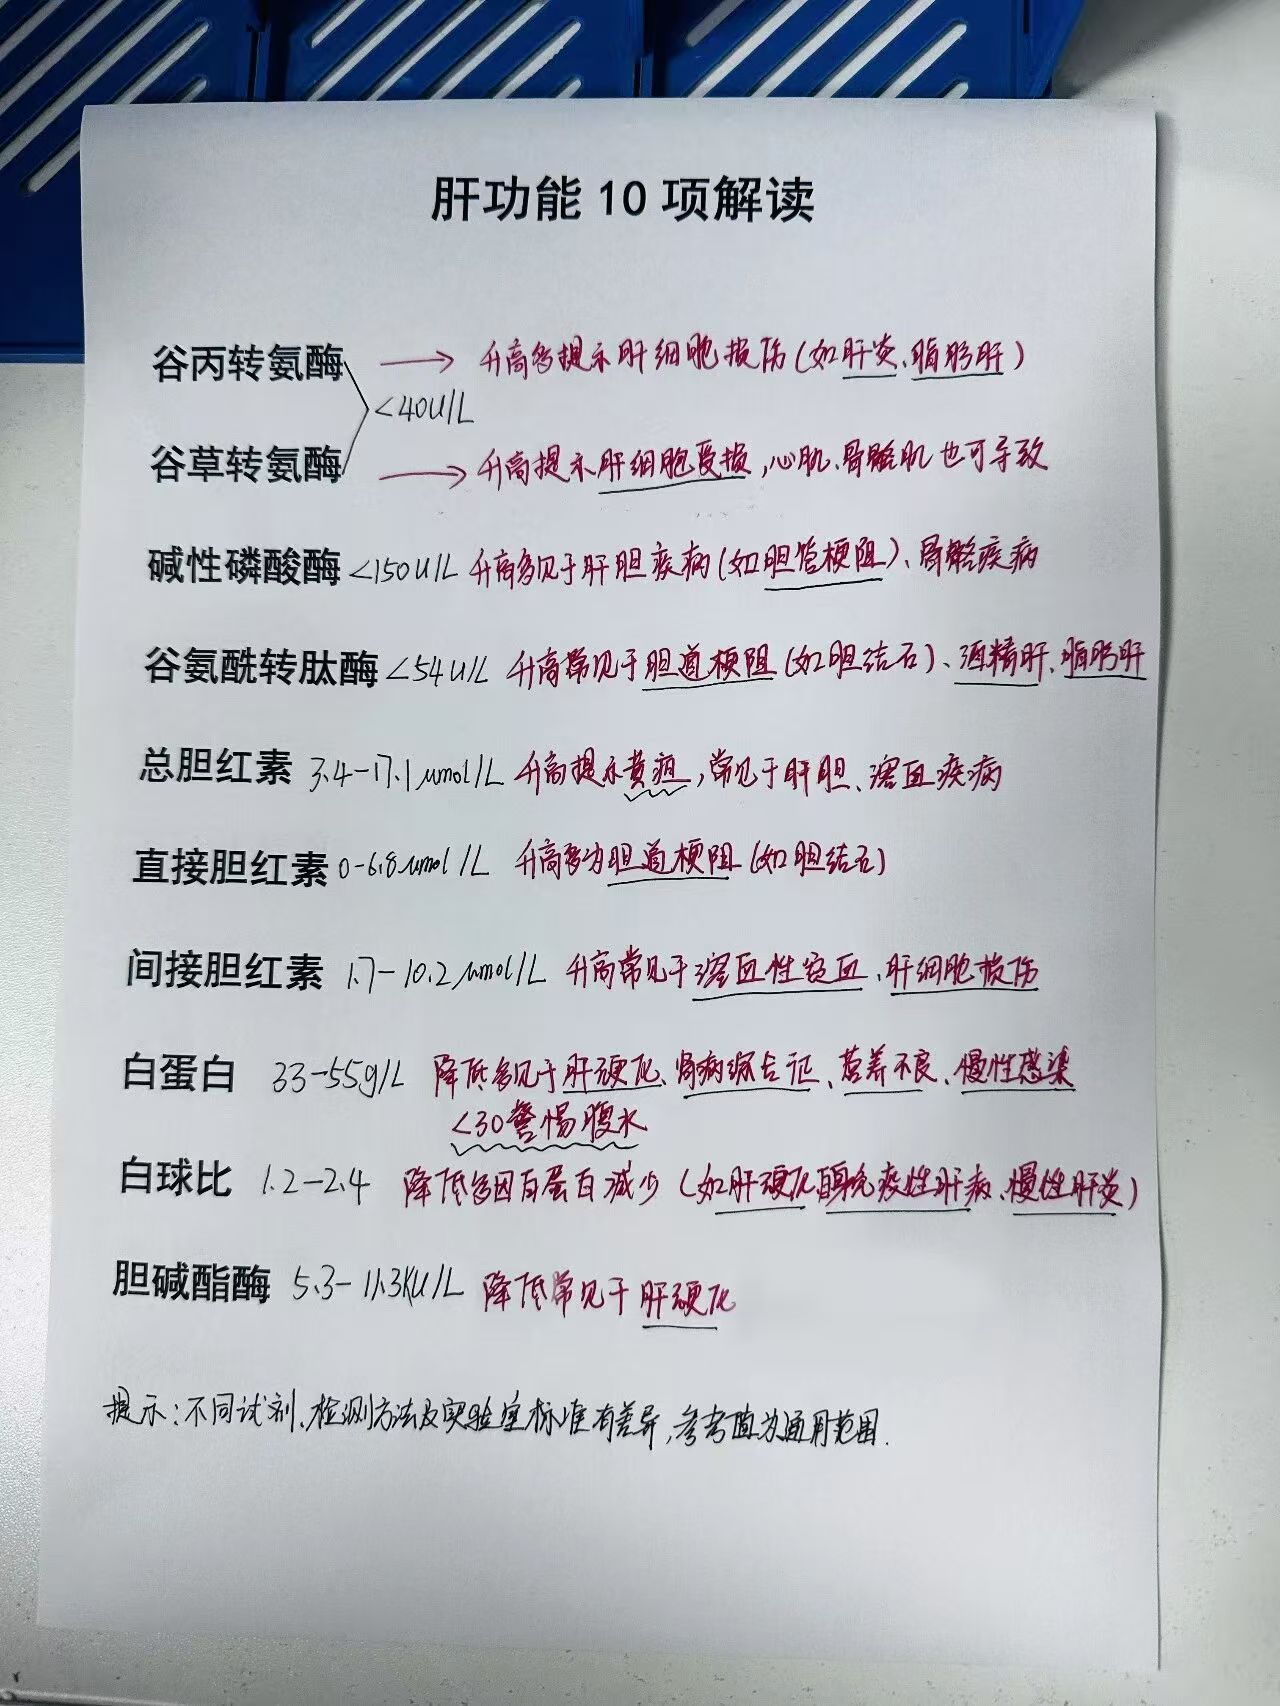 肝功能 10 项解读
谷丙转氨酶 → 升高多提示肝细胞损伤(如肝炎、脂肪肝)
<40U/L
谷草转氨酶 → 升高提示肝细胞受损,心肌、骨骼肌也可导致
碱性磷酸酶 <150U/L 升高多见于肝胆疾病(如胆管梗阻)、骨骼疾病
谷氨酰转肽酶 <54U/L 升高常见于胆道梗阻(如胆结石)、酒精肝、脂肪肝
总胆红素 3.4-17.1μmol/L 升高提示黄疸,常见于肝胆、溶血疾病
直接胆红素 0-6.8μmol/L 升高多为胆道梗阻(如胆结石)
间接胆红素 1.7-10.2μmol/L 升高常见于溶血性贫血、肝细胞损伤
白蛋白 33-55g/L 降低多见于肝硬化、肾病综合征、营养不良、慢性感染
<30警惕腹水
白球比 1.2-2.4 降低多因白蛋白减少(如肝硬化、自身免疫性肝病、慢性肝炎)
胆碱酯酶 5.3-11.3KU/L 降低常见于肝硬化
提示:不同试剂、检测方法及实验室标准有差异,参考值为通用范围.